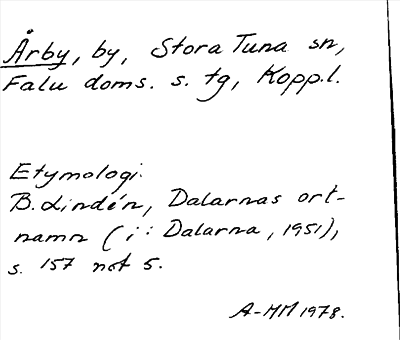 Årby, by, Stora Tuna sn,
Falu doms. s. tg, Kopp.l.
Etymologi:
B. Lindén, Dalarnas ort-
namn (i: Dalarna, 1951),
s. 157 not 5.
A-MM 1978.